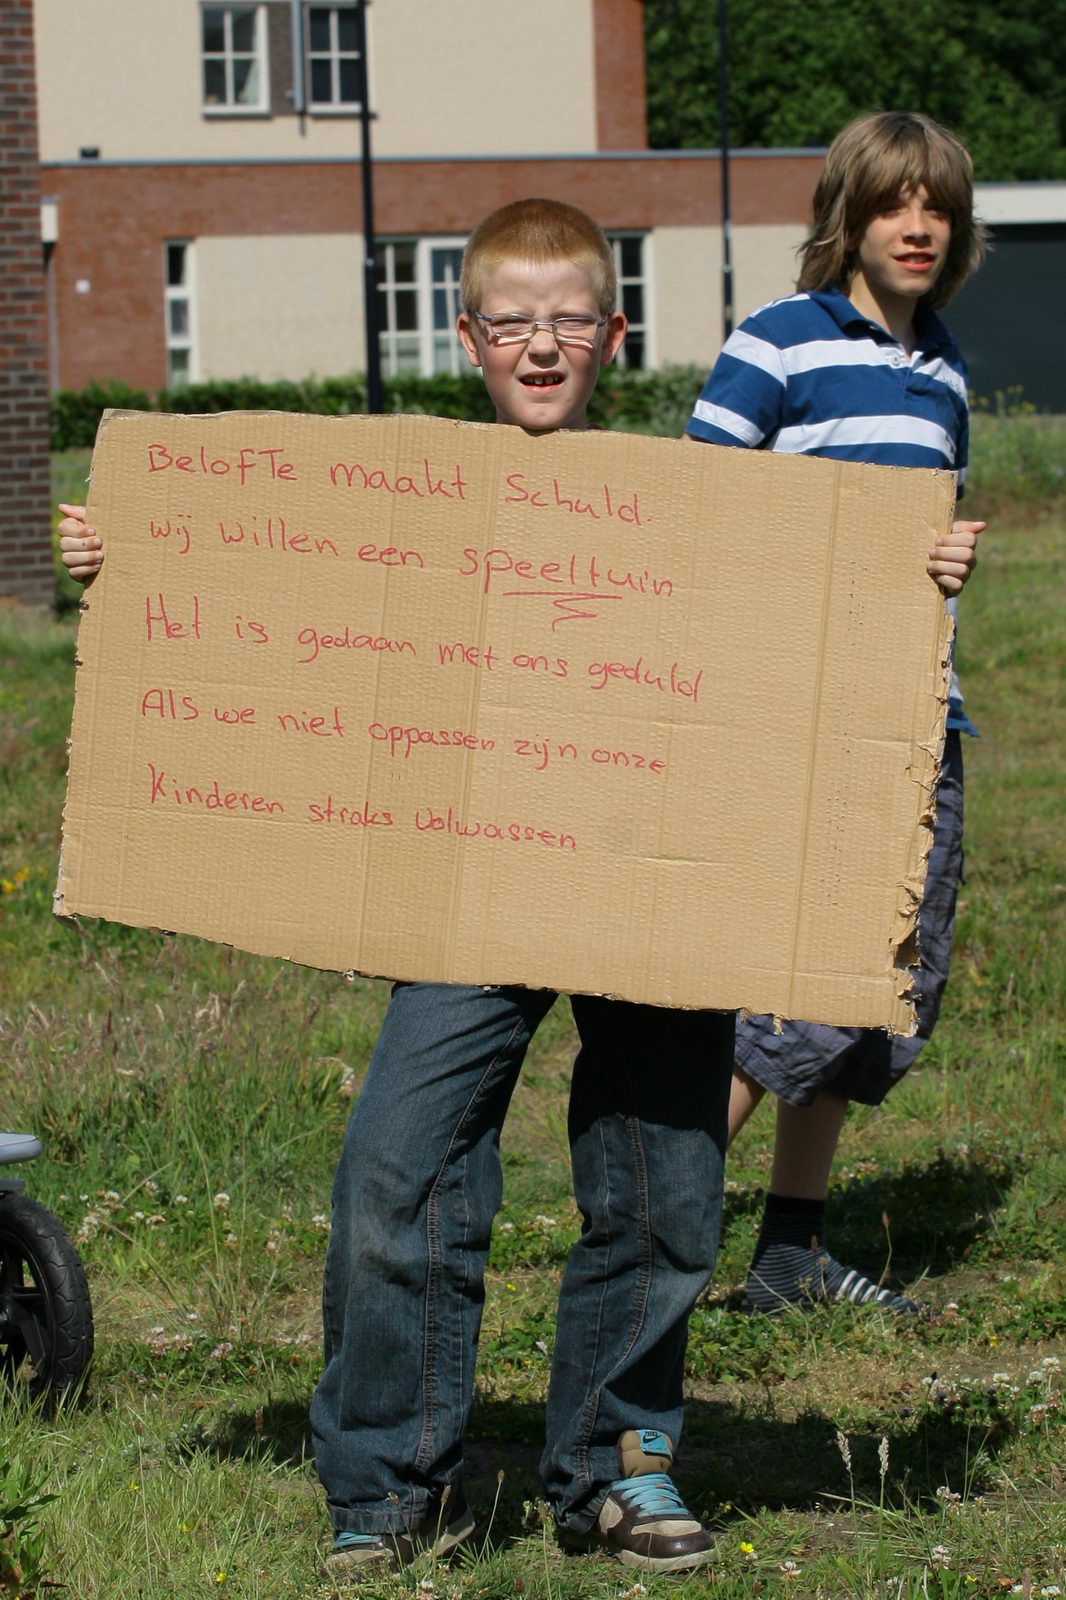 Belofte maakt Schuld.
wij willen een speeltuin
Het is gedaan met ons geduld
Als we niet oppassen zijn onze
Kinderen straks volwassen